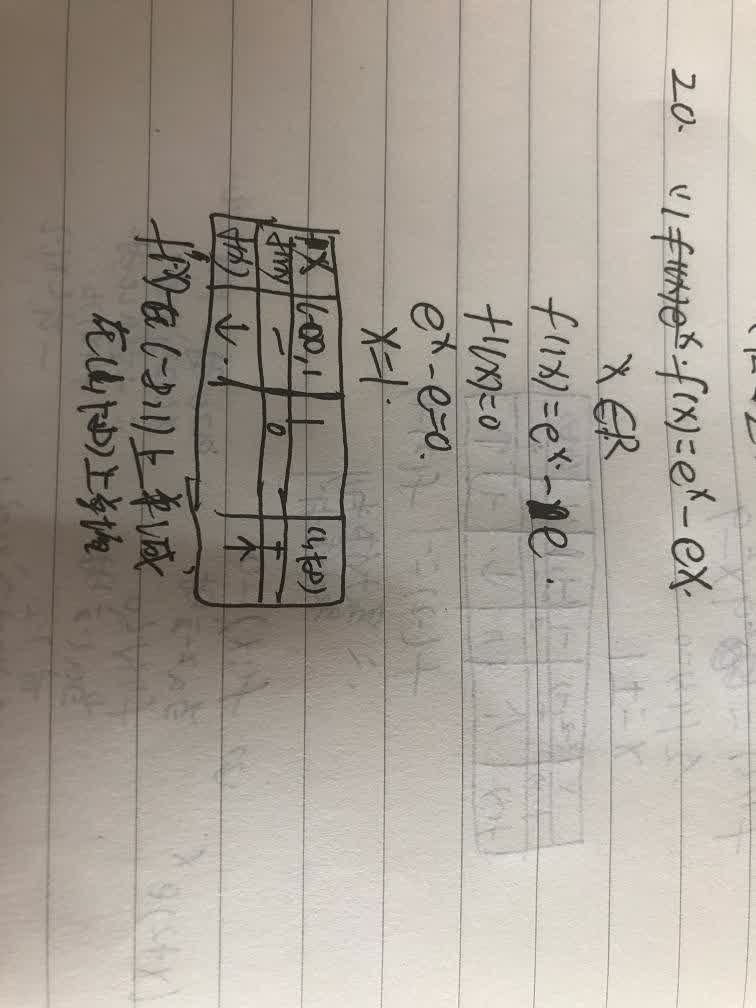 20. (1) f(x)=e^x-ex.
x∈R
f'(x)=e^x-e.
f'(x)=0
e^x-e=0.
x=1.
x (-∞,1 1 (1,+∞)
f'(x) - 0 +
f(x) ↓ ↑
f(x)在(-∞,1)上单减
在(1,+∞)上单增